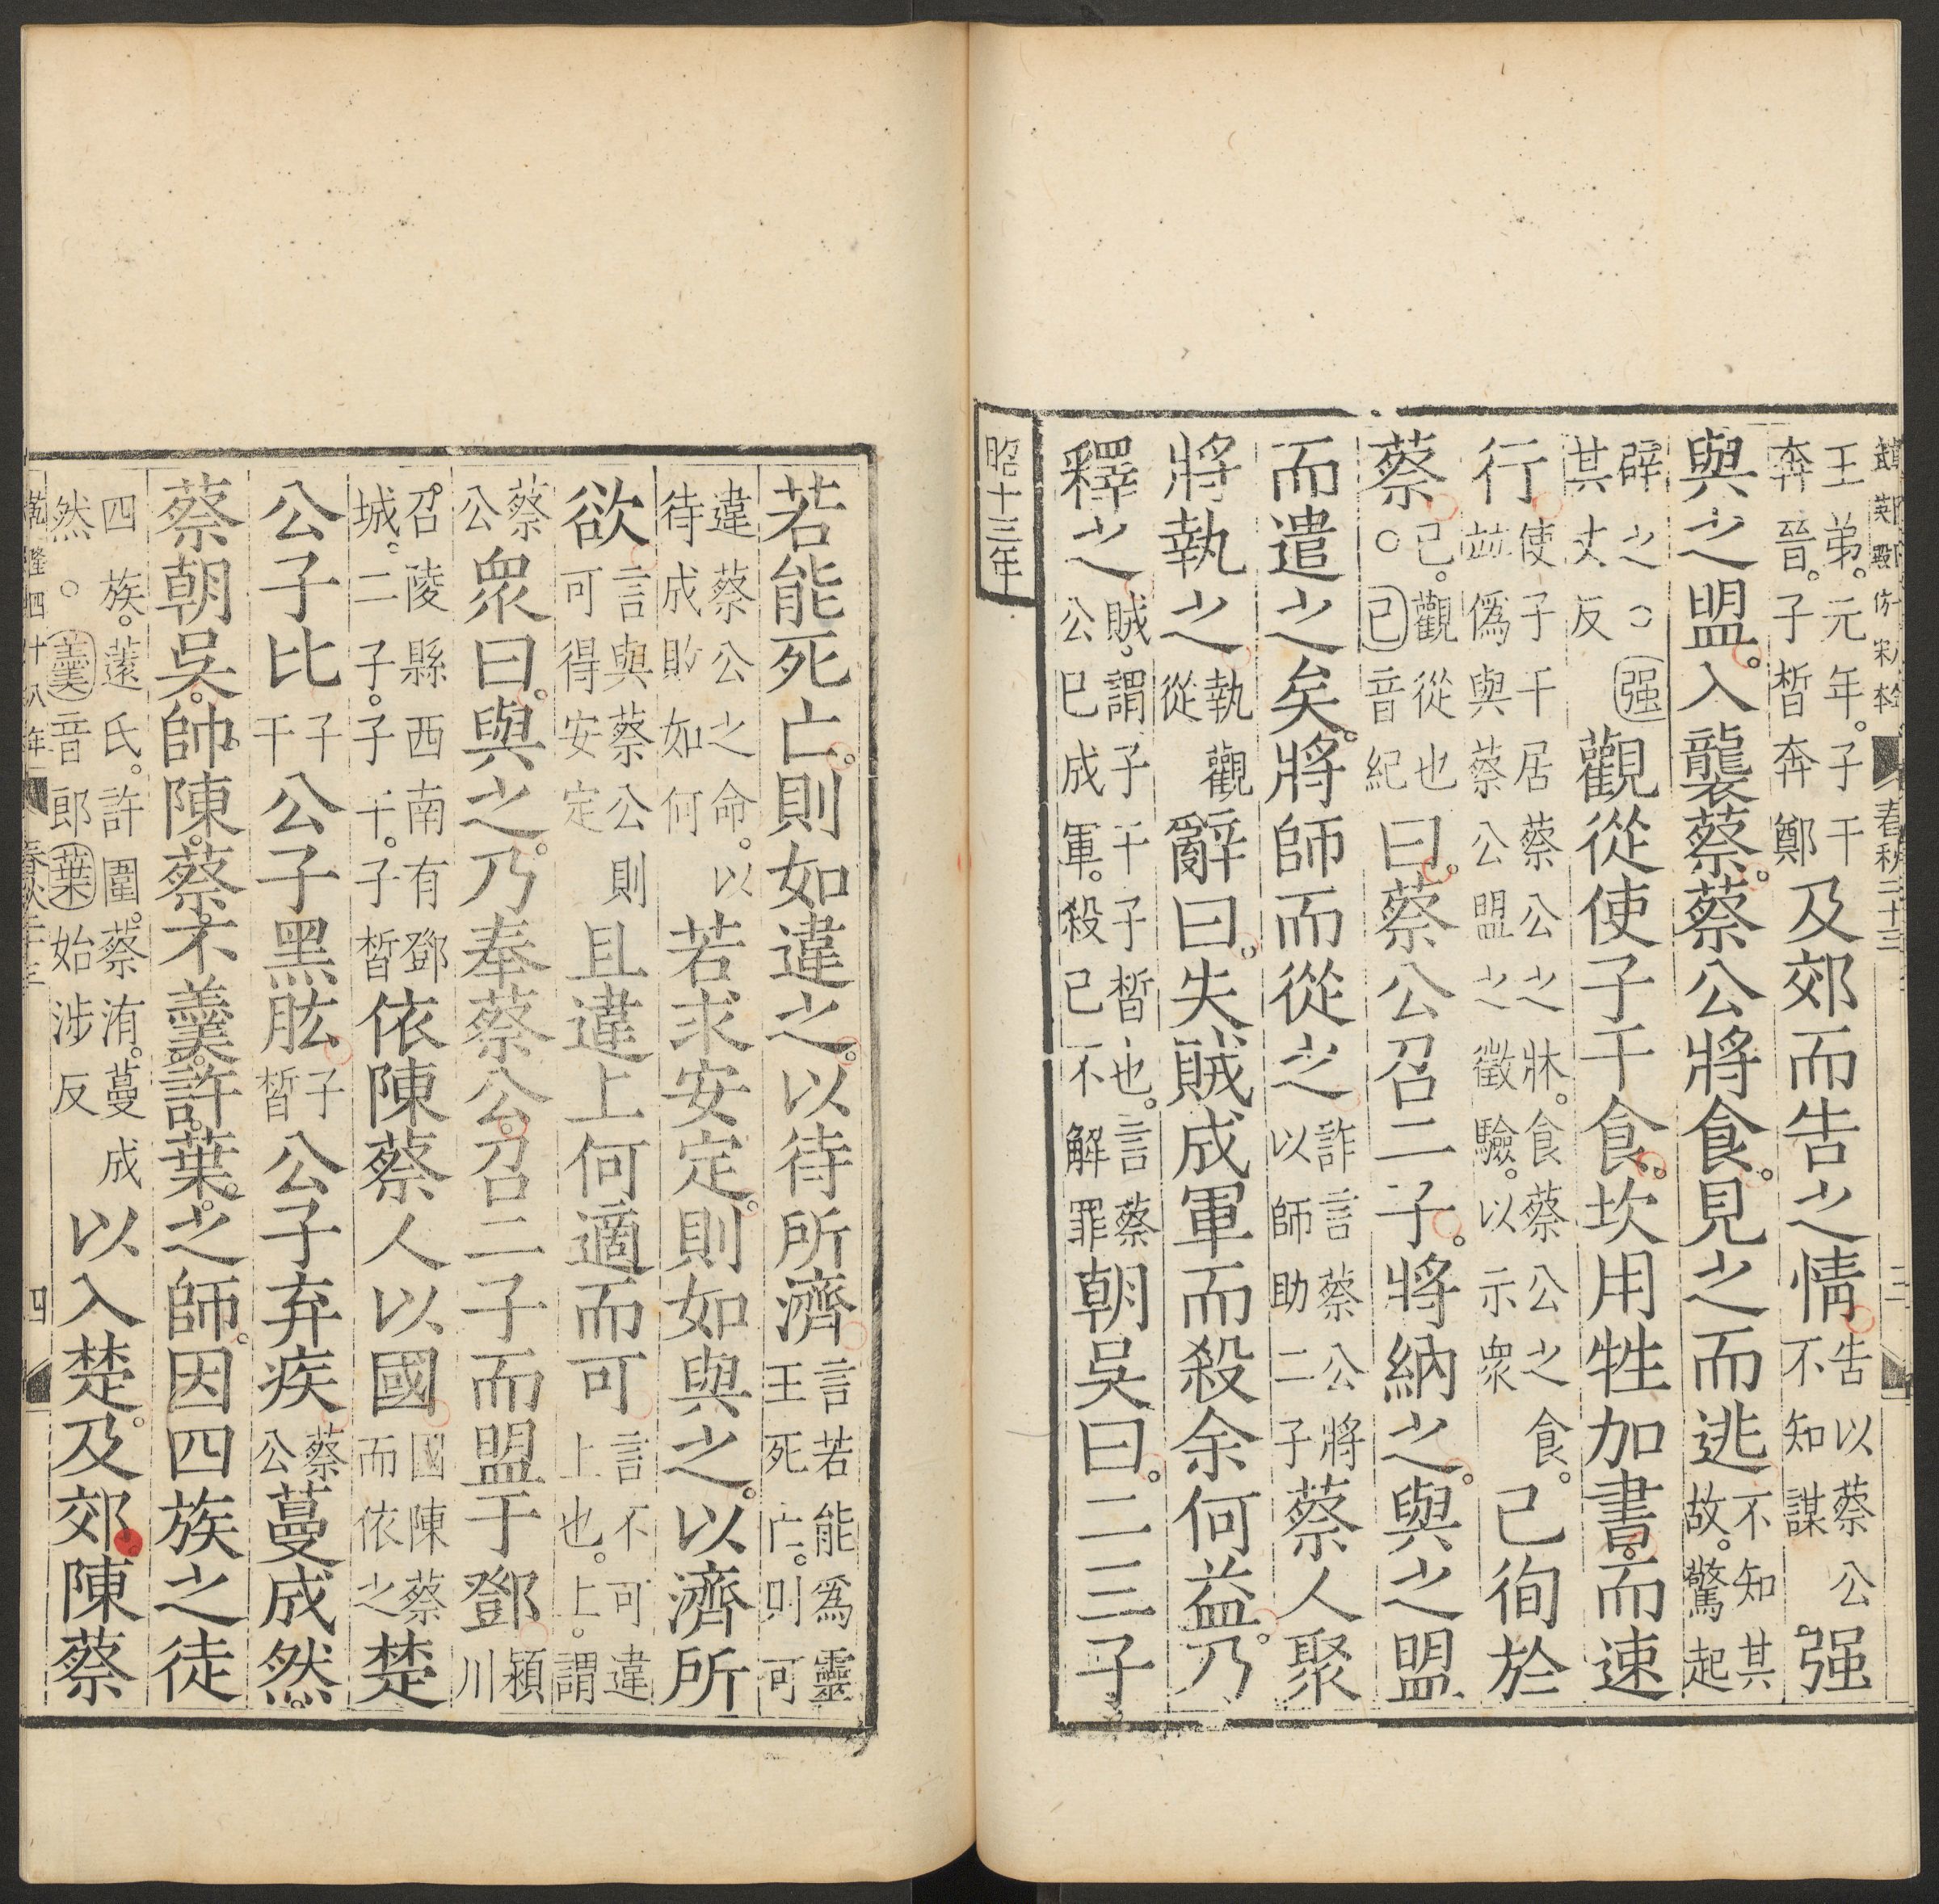 武英殿仿宋本 春秋二十三 三
王弟。元年。子干奔晉。子晳奔鄭及郊而告之情告以蔡公不知謀强
與之盟。入襲蔡。蔡公將食。見之而逃不知其故。驚起
辟之○强其丈反觀從使子干食。坎用牲加書。而速
行使子干居蔡公之牀。食蔡公之食。竝僞與蔡公盟之徵驗。以示衆己徇於
蔡己。觀從也○己音紀曰。蔡公召二子。將納之。與之盟
而遣之矣。將師而從之詐言蔡公將以師助二子蔡人聚
將執之執觀從辭曰。失賊成軍而殺余何益。乃
釋之賊。謂子干子晳也。言蔡公已成軍。殺己不解罪朝吳曰。二三子
昭十三年
若能死亡。則如違之。以待所濟言若能爲靈王死亡。則可
違蔡公之命。以待成敗如何若求安定。則如與之。以濟所
欲言與蔡公則可得安定且違上何適而可言不可違上也。上。謂
蔡公衆曰。與之。乃奉蔡公。召二子而盟于鄧潁川
召陵縣西南有鄧城。二子。子干。子晳依陳蔡人以國國陳蔡而依之楚
公子比子干公子黑肱子晳公子弃疾蔡公蔓成然。
蔡朝吳。帥陳。蔡。不羹。許。葉。之師。因四族之徒
四族。薳氏。許圍。蔡洧。蔓成然○羹音郎葉始涉反以入楚。及郊。陳蔡
乾隆四十八年 春秋二十三 四